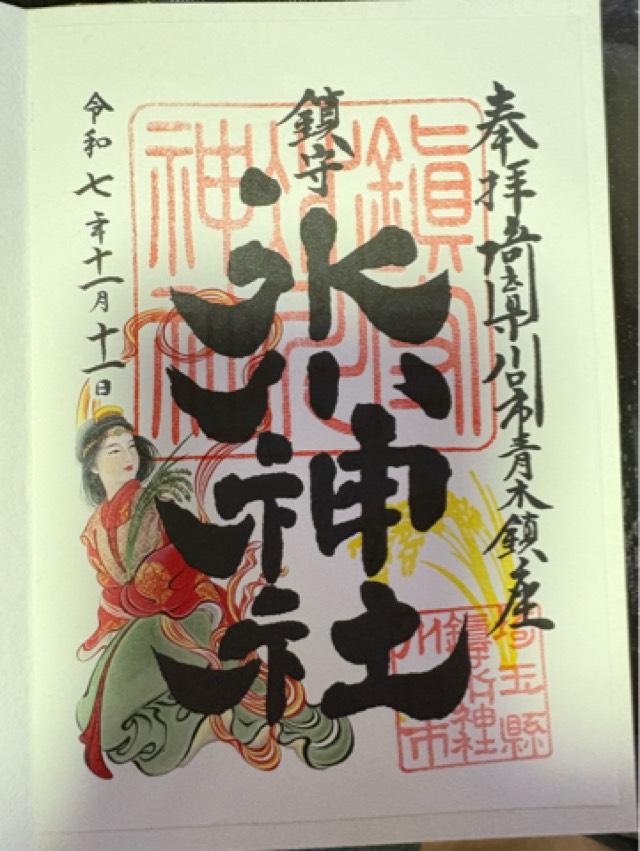 奉拝 埼玉県川口市青木鎮座
鎮守
氷川神社
令和七年十一月十一日
埼玉縣
鎮守氷川神社
川口市